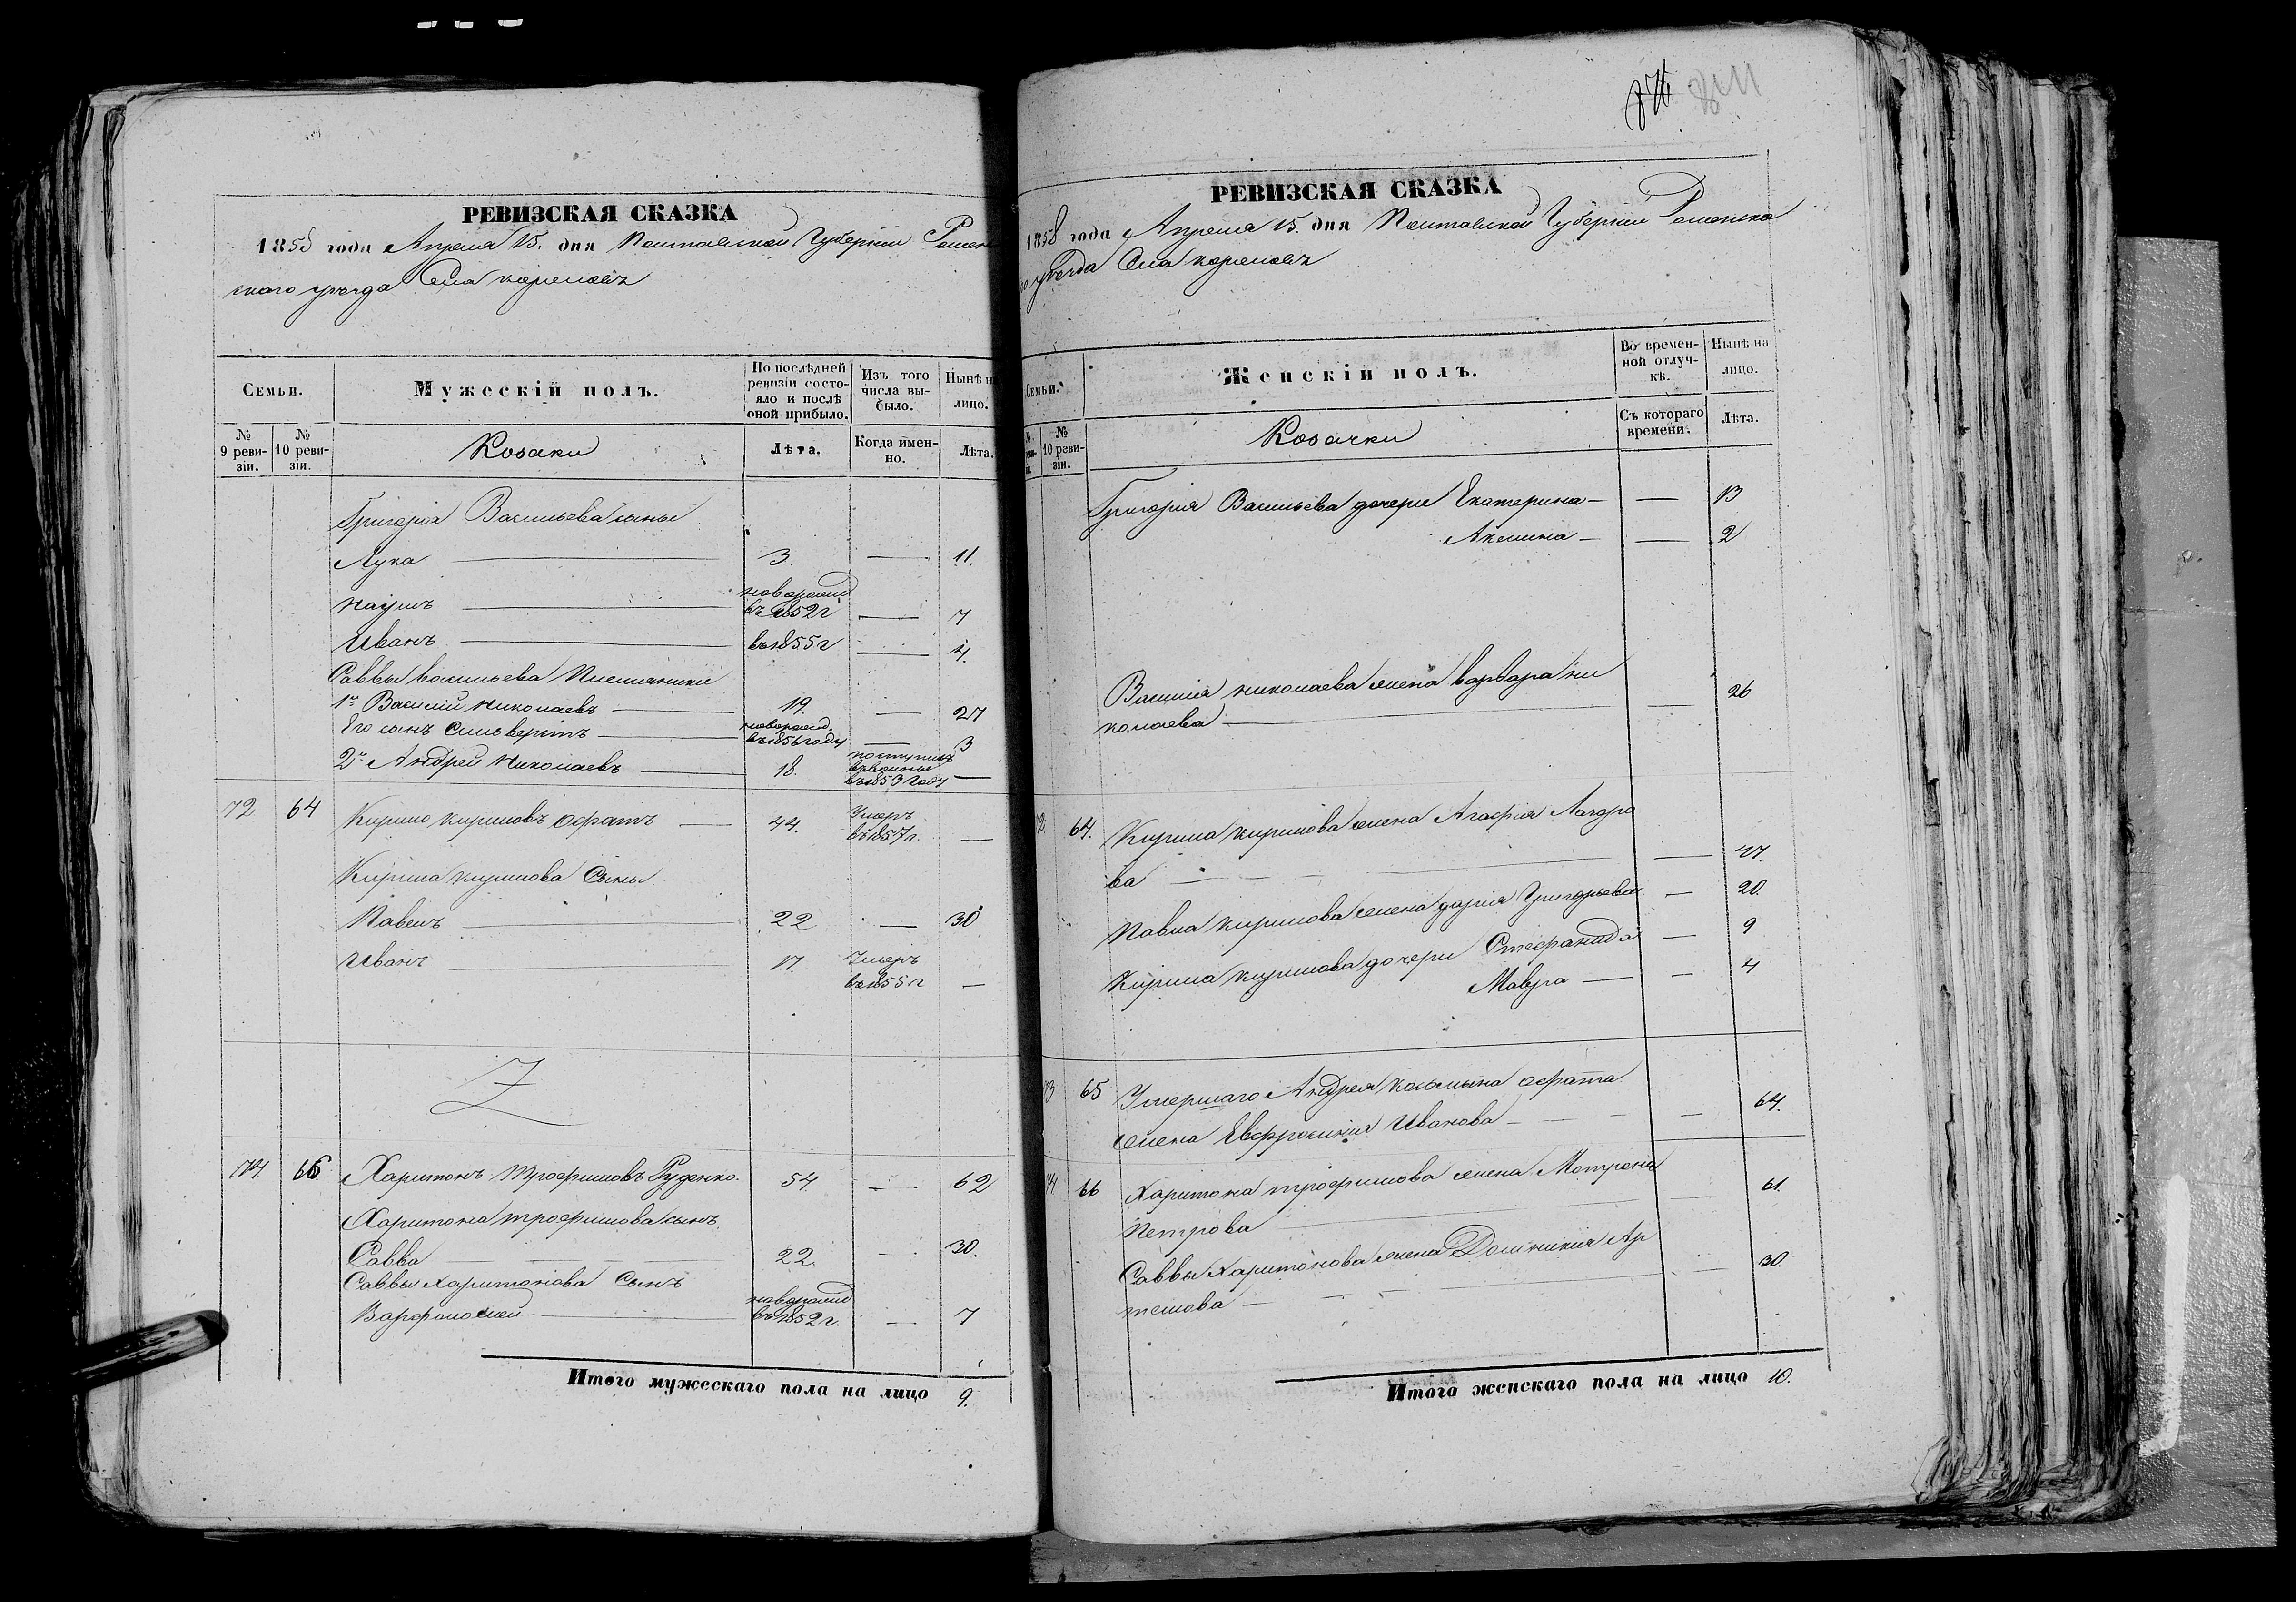 РЕВИЗСКАЯ СКАЗКА
1858 года Апреля 15. дня Полтавской Губернии Ромен
скаго уезда Села кореновъ
Семьи.
Мужескій полъ.
По послѣдней ревизіи состояло и послѣ оной прибыло.
Изъ того числа выбыло.
Нынѣ на лицо.
№ 9 ревизіи.
№ 10 ревизіи.
Козаки
Лѣта.
Когда имен-но.
Лѣта.
Григорія Васильева сыны
Лука 3. — 11.
Наумъ новорожд въ 1852 г — 7
Иванъ въ 1855 г — 4.
Саввы васильева Племянники
1й Василій николаевъ 19. — 27
Его сынъ Сильверстъ новорожд. въ 1856 году — 3
2й Андрей николаевъ 18. поступилъ въ 1853 году —
72 64 Кирило кириловъ 44. Умеръ въ 1857 г. —
Кирила кирилова Сыны.
Павелъ 22 — 30
Иванъ 17. Умеръ въ 1855 г —
74. 66. Харитонъ трофимовъ Руденко. 54. — 62
Харитона трофимова сынъ.
Савва 22. — 30.
Саввы Харитонова Сынъ
Варфоломей новорожд въ 1852 г. — 7
Итого мужескаго пола на лицо 9.
РЕВИЗСКАЯ СКАЗКА
1858 года Апреля 15. дня Полтавской Губернии Роменска
го уезда Села кореновъ
Семьи.
Женскій полъ.
Во временной отлучкѣ.
Нынѣ на лицо.
№ 10 ревизіи.
Козачки
Съ котораго времени.
Лѣта.
Григорія Васильева дочери Екатерина — — 13
Акелина — — 2
Василія николаева жена варвара ни
колаева — 26
64. Кирила кирилова жена Агафия
ва — 47.
Павла кирилова жена дария Григорьева — 20.
Кирила кирилова дочери Стефанида — 9
Мавра — — 4
73 65 Умершаго Андрея
жена Евфросиния Иванова — — 64.
74 66 Харитона трофимова жена Мотрона
Петрова — 61.
Саввы Харитонова жена Домникия Ар
темова — 30.
Итого женскаго пола на лицо 10.